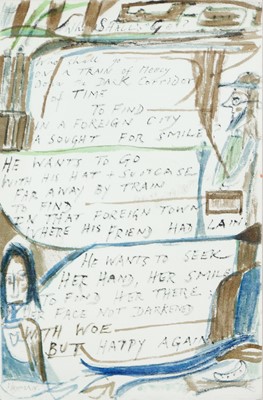 ON A TRAIN OF
DOWN A DARK CORRIDOR
OF TIME
TO FIND
IN A FOREIGN CITY
A SOUGHT FOR SMILE
HE WANTS TO GO
WITH HIS HAT + SUITCASE
FAR AWAY BY TRAIN
TO FIND
IN THAT FOREIGN TOWN
WHERE HIS FRIEND HAD LAIN
HE WANTS TO SEEK
HER HAND, HER SMILE
TO FIND HER THERE
HER FACE NOT DARKEND
WITH WOE
BUT HAPPY AGAIN